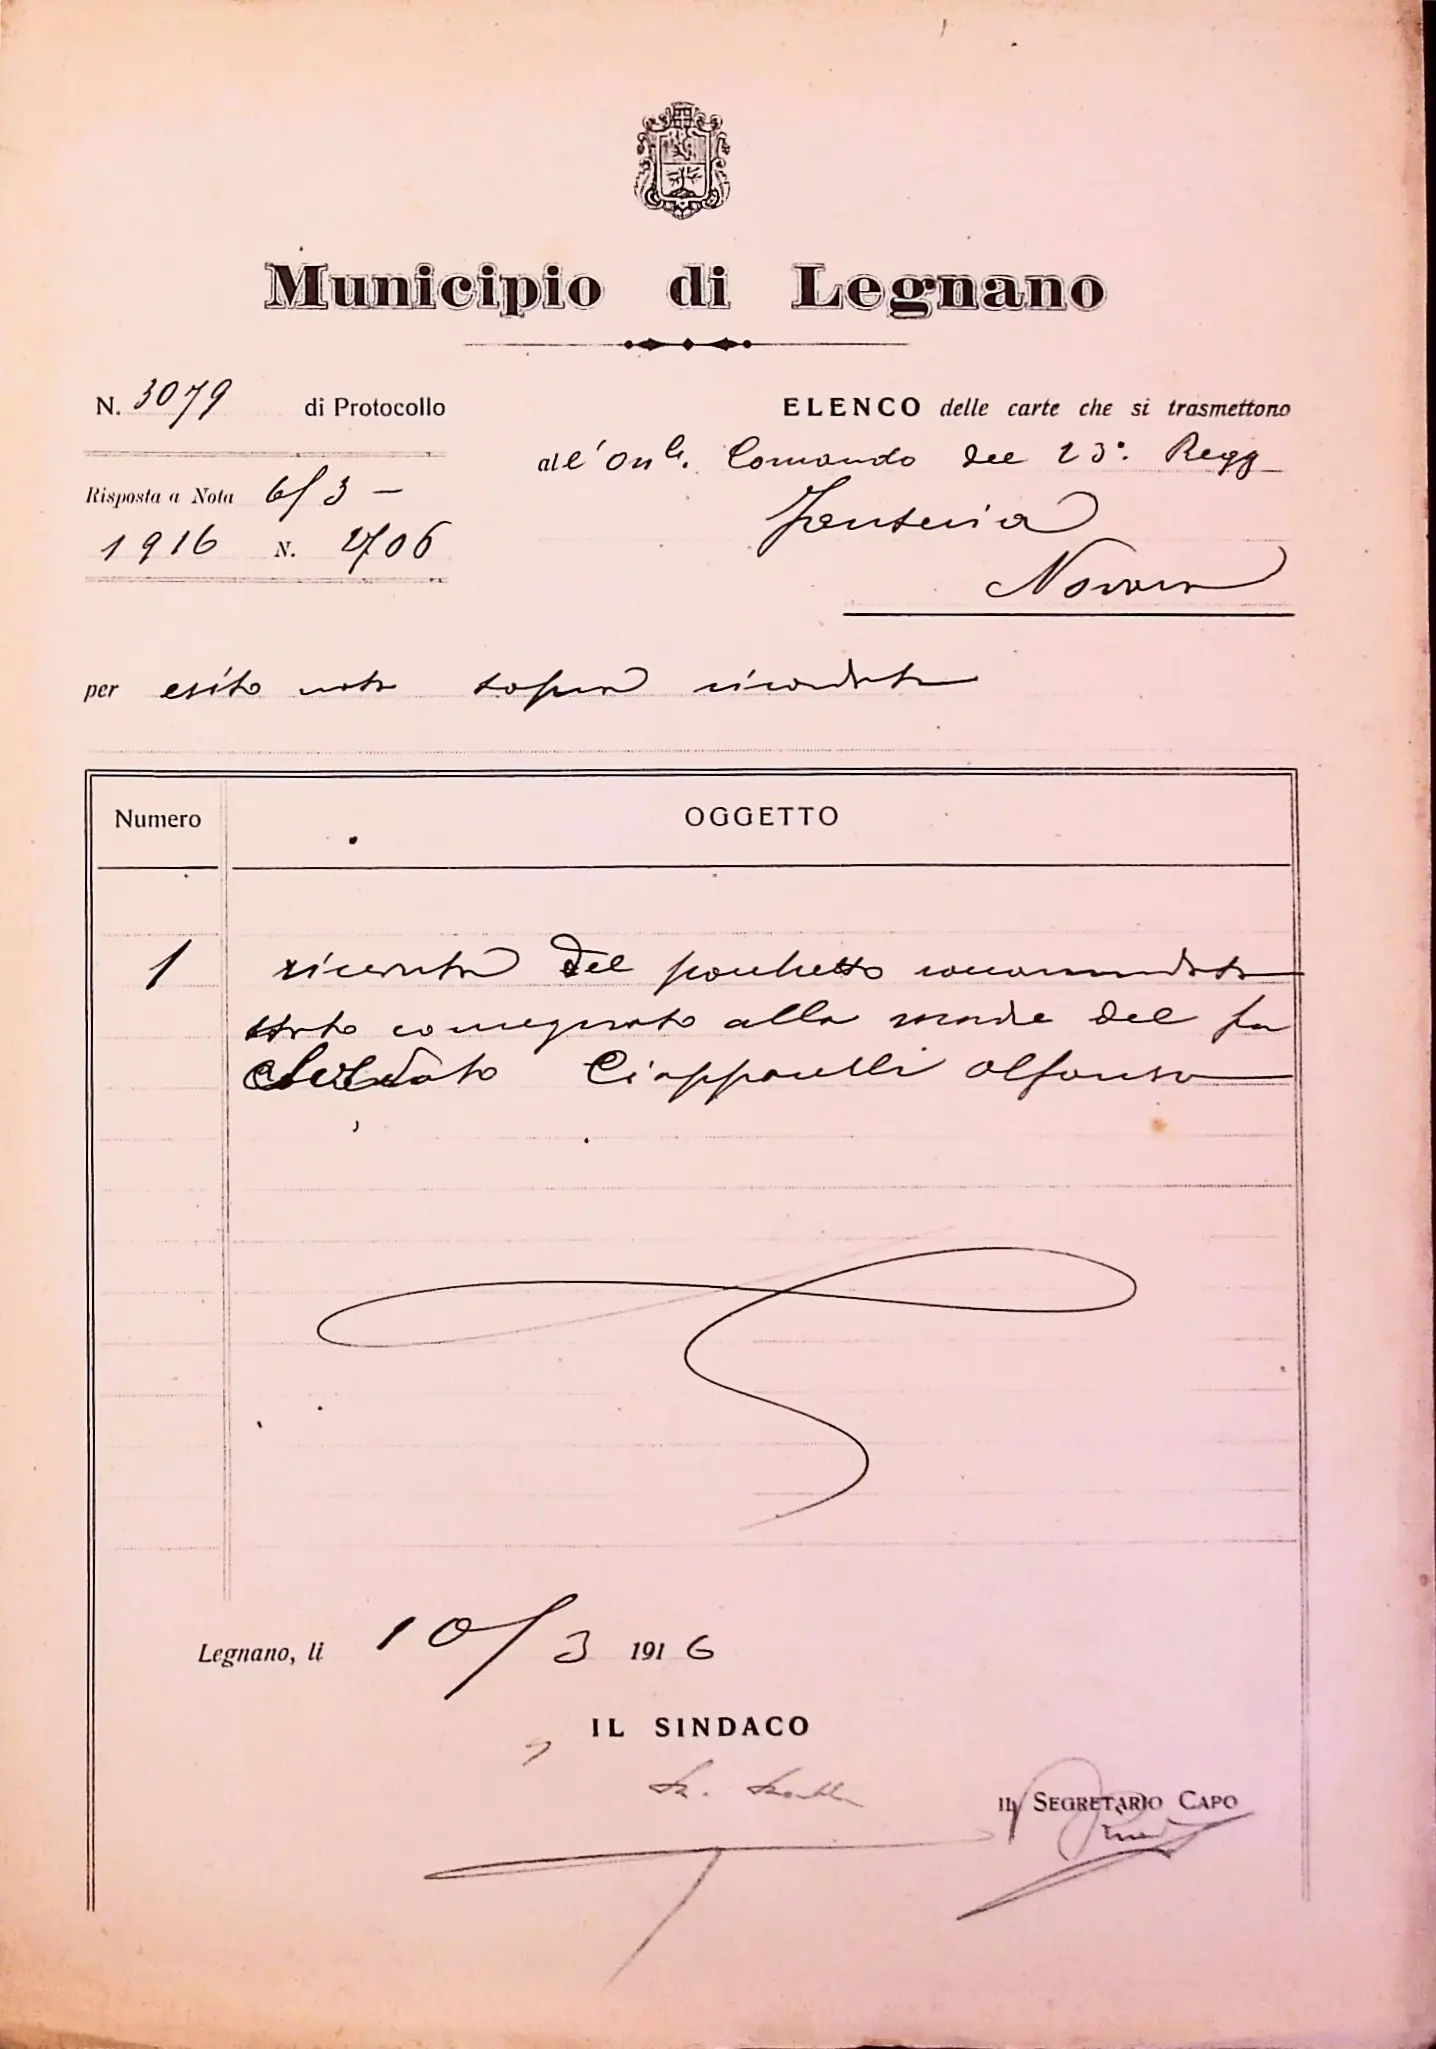 Municipio di Legnano
N. 3079 di Protocollo
Risposta a Nota 6/3 -
1916 N. 2706
ELENCO delle carte che si trasmettono
all'On. Comando del 23° Regg
Fanteria
Novara
per esito nota sopra ricordata
Numero OGGETTO
1 ricevuta del pacchetto raccomandato
stato consegnato alla madre del fu
Soldato Ciapparelli Alfonso
Legnano, li 10/3 1916
IL SINDACO
IL SEGRETARIO CAPO